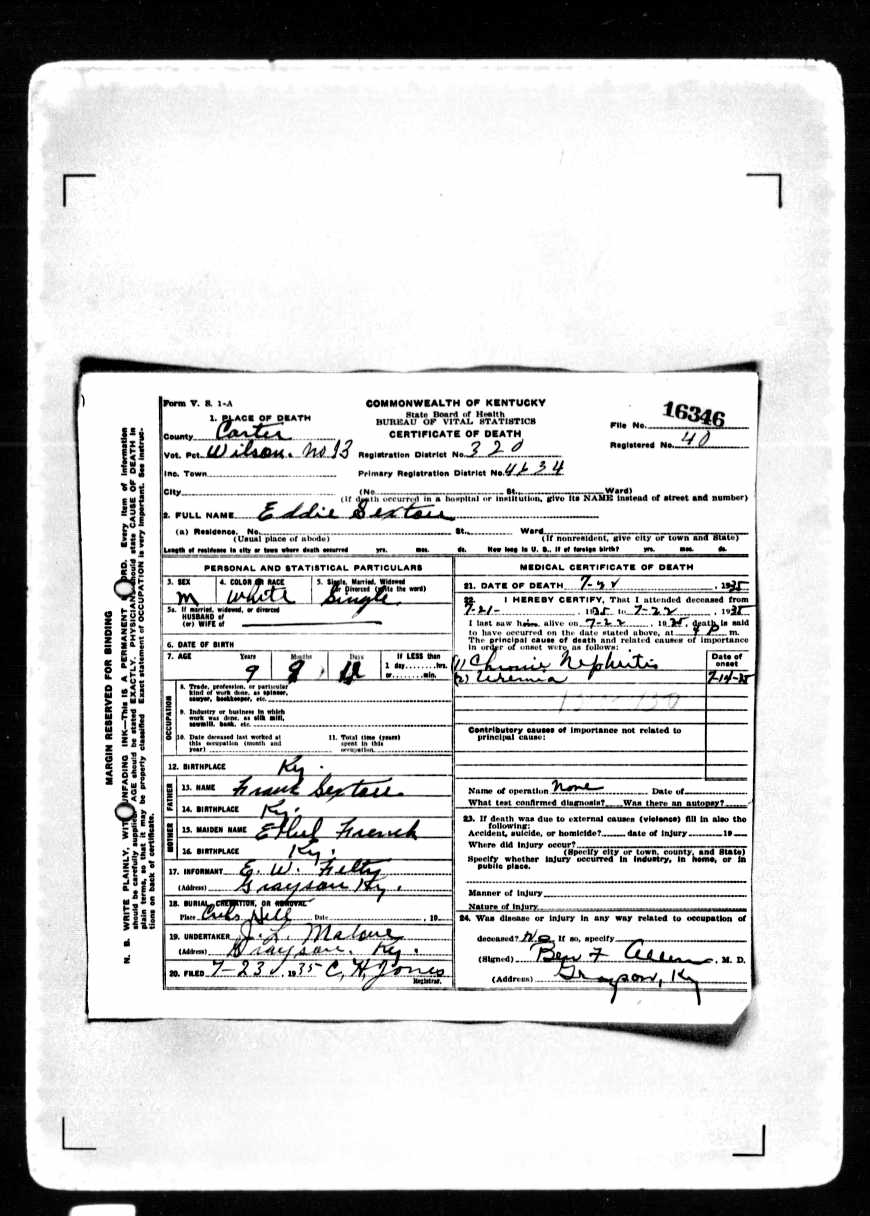 Form V. S. 1-A
COMMONWEALTH OF KENTUCKY
State Board of Health
BUREAU OF VITAL STATISTICS
CERTIFICATE OF DEATH
File No. 16346
Registered No. 40
1. PLACE OF DEATH
County Carter
Vot. Pct. Wilson. No 13 Registration District No. 320
Inc. Town Primary Registration District No.
City (No. St., Ward)
(If death occurred in a hospital or institution, give its NAME instead of street and number)
2. FULL NAME Eddie Sexton
(a) Residence. No. St., Ward
(Usual place of abode) (If nonresident, give city or town and State)
Length of residence in city or town where death occurred yrs. mos. ds. How long in U. S., if of foreign birth? yrs. mos. ds.
PERSONAL AND STATISTICAL PARTICULARS
3. SEX 4. COLOR OR RACE 5. Single, Married, Widowed
or Divorced (write the word)
M White Single
5a. If married, widowed, or divorced
HUSBAND of
(or) WIFE of
6. DATE OF BIRTH
7. AGE Years Months Days If LESS than
1 day, hrs.
or min.
9
OCCUPATION
8. Trade, profession, or particular
kind of work done, as spinner,
sawyer, bookkeeper, etc.
9. Industry or business in which
work was done, as silk mill,
sawmill, bank, etc.
10. Date deceased last worked at
this occupation (month and
year)
11. Total time (years)
spent in this
occupation
12. BIRTHPLACE Ky.
FATHER
13. NAME Frank Sexton
14. BIRTHPLACE Ky.
MOTHER
15. MAIDEN NAME Ethel French
16. BIRTHPLACE Ky.
17. INFORMANT E. W. Felty
(Address) Grayson Ky.
18. BURIAL, CREMATION, OR REMOVAL
Place Hill Date , 19
19. UNDERTAKER J. L. Malone
(Address) Grayson. Ky.
20. FILED 7-23, 1935 C. H. Jones
Registrar.
MEDICAL CERTIFICATE OF DEATH
21. DATE OF DEATH 7-22, 1935
22. I HEREBY CERTIFY, That I attended deceased from
7-21-, 1935 to 7-22, 1935
I last saw him alive on 7-22, 1935, death is said
to have occurred on the date stated above, at 4 P m.
The principal cause of death and related causes of importance
in order of onset were as follows:
Date of
onset
(1) Chronic Nephritis
(2) Uremia
Contributory causes of importance not related to
principal cause:
Name of operation None Date of
What test confirmed diagnosis? Was there an autopsy?
23. If death was due to external causes (violence) fill in also the
following:
Accident, suicide, or homicide? date of injury 19
Where did injury occur?
(Specify city or town, county, and State)
Specify whether injury occurred in industry, in home, or in
public place.
Manner of injury
Nature of injury
24. Was disease or injury in any way related to occupation of
deceased? No If so, specify
(Signed) Ben F Allen, M. D.
(Address) Grayson, Ky
MARGIN RESERVED FOR BINDING
N. B. WRITE PLAINLY, WITH UNFADING INK—THIS IS A PERMANENT RECORD. Every item of information
should be carefully supplied. AGE should be stated EXACTLY. PHYSICIANS should state CAUSE OF DEATH in
plain terms, so that it may be properly classified. Exact statement of OCCUPATION is very important. See instruc-
tions on back of certificate.